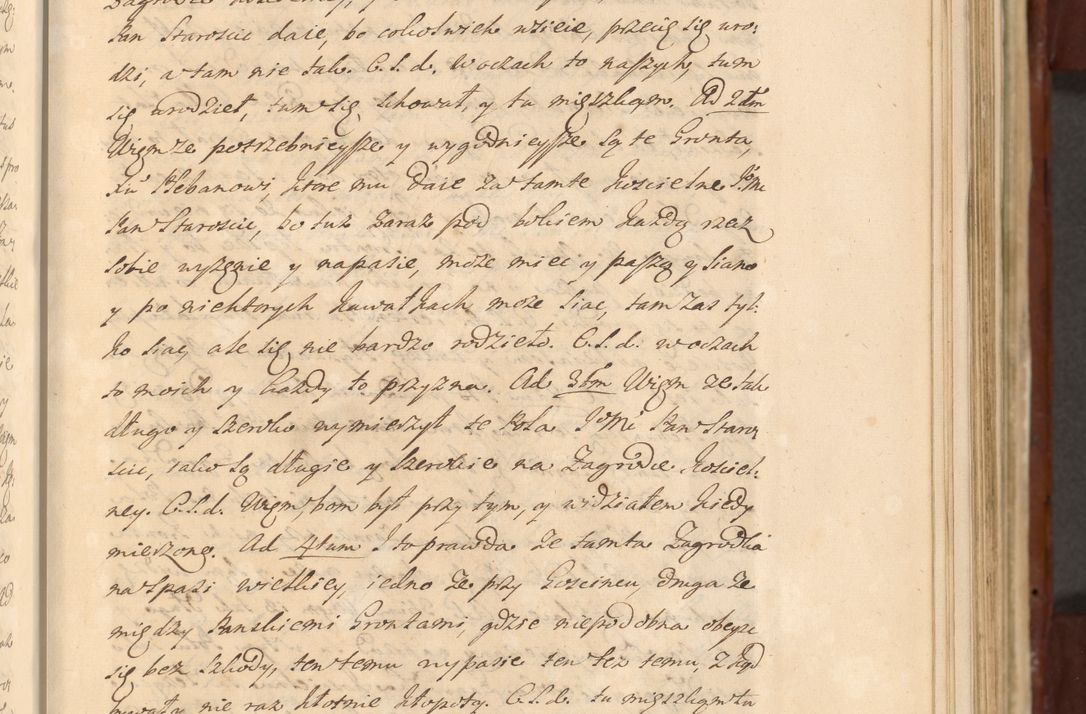 Pan Staroscic daie, bo cokolwiek wsieie, przecię się uro:
dzi, a tam nie tak. C.S.d. w oczach to naszych, tum
się urodzieł, tum się chował, y tu mięszkam. Ad 2dum
Wiem ze potrzebnieysze y wygodnieysze są te Gronta,
Xu Plebanowi, ktore mu daie za tamte koscielne Jmc
Pan Staroscic, bo tuż zaraz pod bokiem każdą rzecz
sobie wyżęnie y napasie, może miec y paszę y siano
y po niektorych kawałkach może siac, tam zas tyl:
ko siac, ale się nie bardzo rodzieło. C.S.d. w oczach
to moich y każdy to przyzna. Ad 3tium Wiem ze tak
długo y szeroko wymierzył te Pola JMc Pan Staro
scic, iako są długie y szerokie na Zagrodzie kosciel:
ney. C.S.d. Wiem, bom był przy tym, y widziałem kiedy
mierzono. Ad 4tum I to prawda ze tamta Zagrodka
na spasi wielkiey, iedno ze przy Goscincu, druga ze
między Panskiemi Grontami, gdzie niepodobna obeysc
się bez szkody, ten temu wypasie ten tez temu, zkąd
bywały nie raz kłotnie kłopoty. C.S.d. tu mięszkam tu